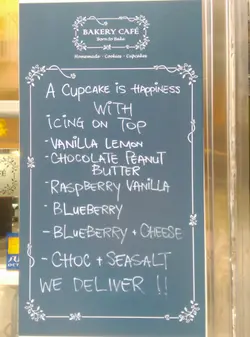 BAKERY CAFÉ
Born to Bake
Homemade · Cookies · Cupcakes
A CUPCAKE IS HAPPINESS
WITH
ICING ON TOP
- VANILLA LEMON
- CHOCOLATE PEANUT
BUTTER
- RASPBERRY VANILLA
- BLUEBERRY
- BLUEBERRY + CHEESE
- CHOC + SEASALT
WE DELIVER !!